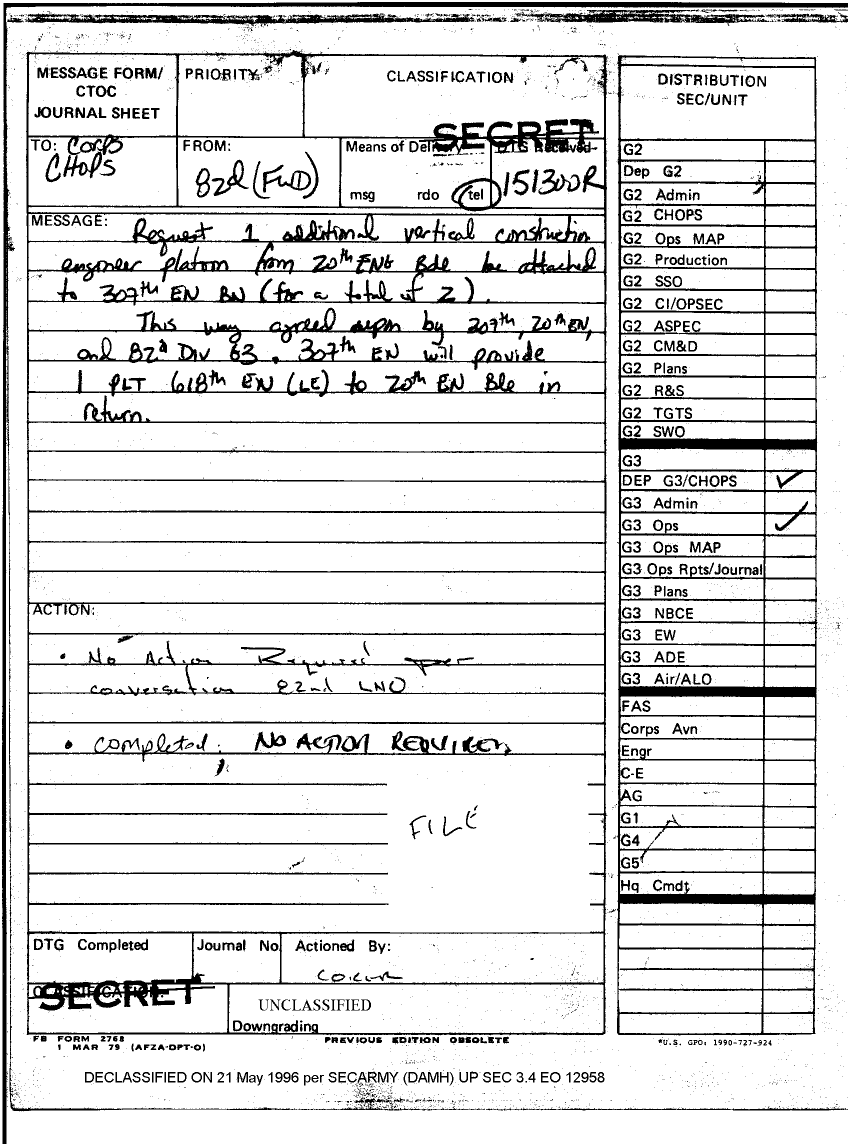 MESSAGE FORM/
CTOC
JOURNAL SHEET
PRIORITY
CLASSIFICATION
SECRET
TO: Corps
CHOPS
FROM:
82d (FWD)
Means of Delivery
msg rdo tel
DTG Received
151300R
MESSAGE: Request 1 additional vertical construction
engineer platoon from 20th ENG Bde be attached
to 307th EN BN (for a total of 2).
This way agreed upon by 307th, 20th EN,
and 82d Div G3. 307th EN will provide
1 PLT 618th EN (LE) to 20th EN Bde in
return.
ACTION:
• No Action Required per
conversation 82nd LNO
• Completed: NO ACTION REQUIRED
FILE
DTG Completed
Journal No.
Actioned By:
CLASSIFICATION
SECRET
UNCLASSIFIED
Downgrading
FB FORM 2768
1 MAR 79 (AFZA-DPT-O)
PREVIOUS EDITION OBSOLETE
DISTRIBUTION
SEC/UNIT
G2
Dep G2
G2 Admin
G2 CHOPS
G2 Ops MAP
G2 Production
G2 SSO
G2 CI/OPSEC
G2 ASPEC
G2 CM&D
G2 Plans
G2 R&S
G2 TGTS
G2 SWO
G3
DEP G3/CHOPS ✓
G3 Admin
G3 Ops ✓
G3 Ops MAP
G3 Ops Rpts/Journal
G3 Plans
G3 NBCE
G3 EW
G3 ADE
G3 Air/ALO
FAS
Corps Avn
Engr
C-E
AG
G1
G4
G5
Hq Cmdt
*U.S. GPO: 1990-727-924
DECLASSIFIED ON 21 May 1996 per SECARMY (DAMH) UP SEC 3.4 EO 12958